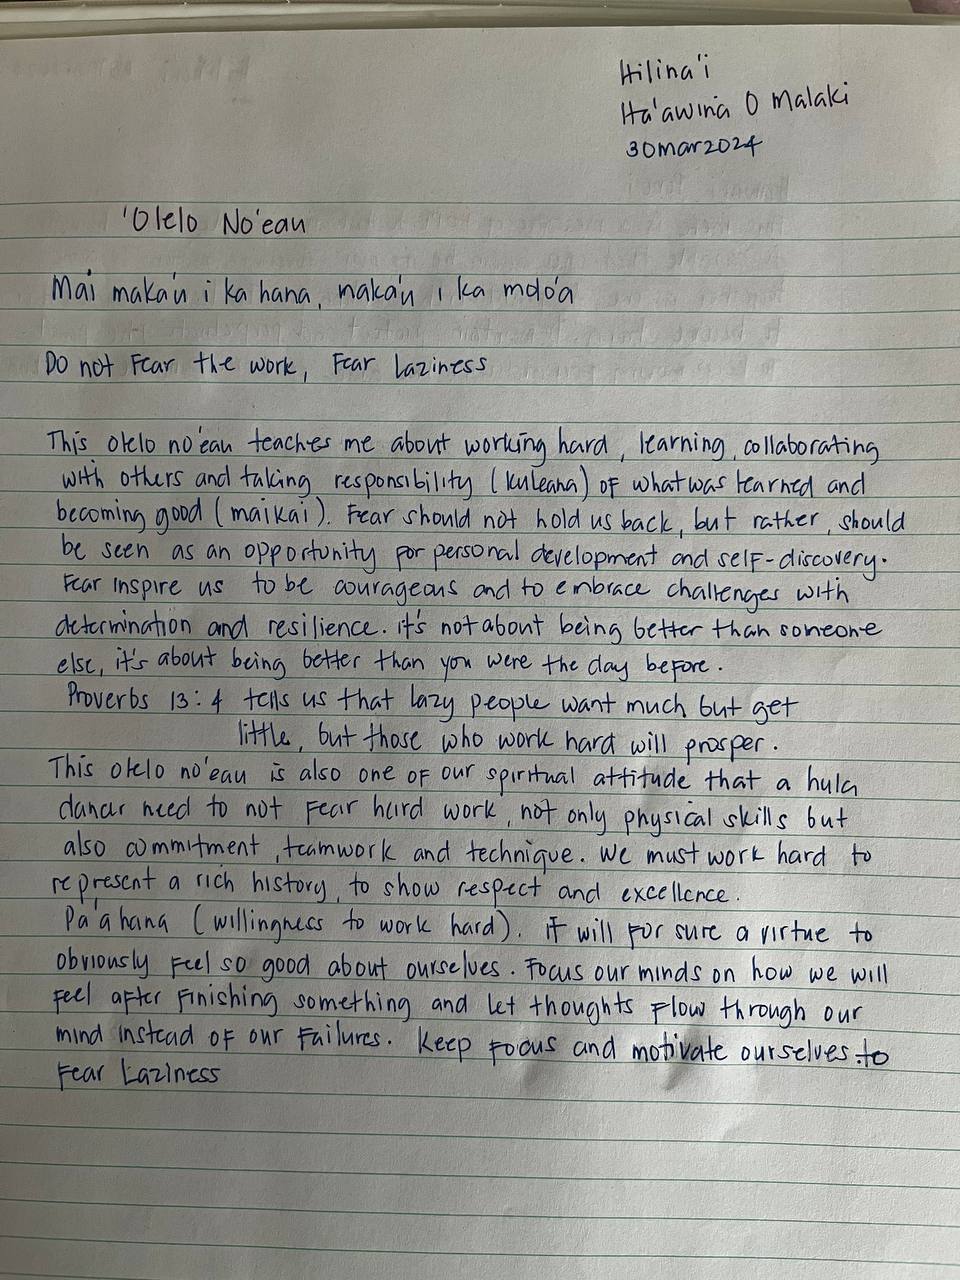 Hilina'i
Ha'awina O Malaki
30mar2024
'Olelo No'eau
Mai maka'u i ka hana, maka'u i ka molo'a
Do not Fear the work, Fear Laziness
This olelo no'eau teaches me about working hard, learning, collaborating
with others and taking responsibility (kuleana) of what was learned and
becoming good (maikai). Fear should not hold us back, but rather, should
be seen as an opportunity for personal development and self-discovery.
Fear inspire us to be courageous and to embrace challenges with
determination and resilience. it's not about being better than someone
else, it's about being better than you were the day before.
Proverbs 13:4 tells us that lazy people want much but get
little, but those who work hard will prosper.
This olelo no'eau is also one of our spiritual attitude that a hula
dancer need to not fear hard work, not only physical skills but
also commitment, teamwork and technique. We must work hard to
represent a rich history, to show respect and excellence.
Pa'ahana (willingness to work hard). it will for sure a virtue to
obviously feel so good about ourselves. Focus our minds on how we will
feel after finishing something and let thoughts flow through our
mind instead of our failures. Keep focus and motivate ourselves to
fear Laziness